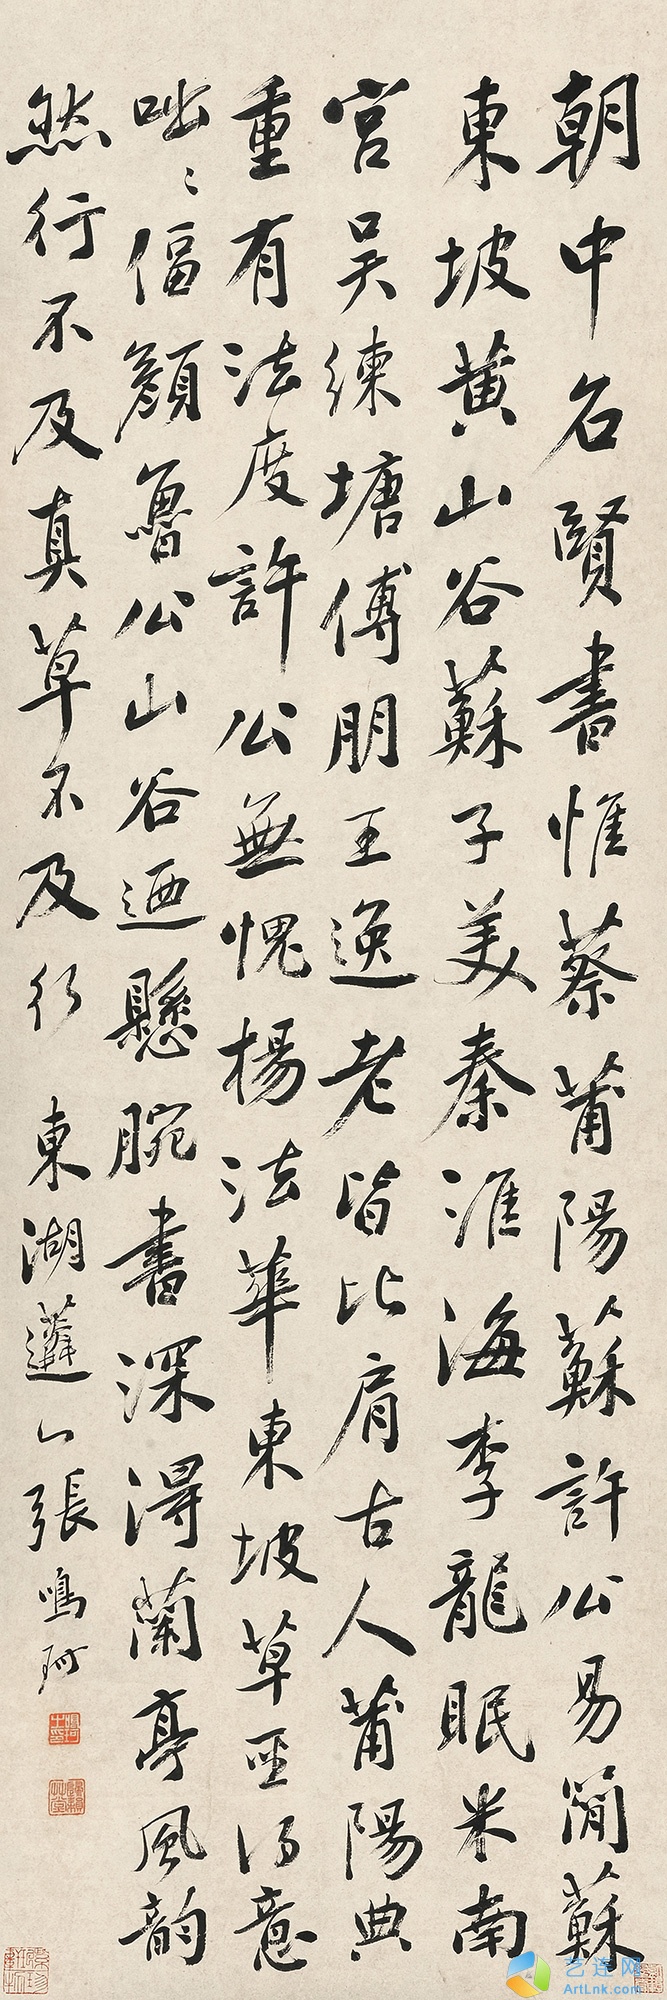 朝中名賢書惟蔡莆陽蘇許公易簡蘇
東坡黄山谷蘇子美秦淮海李龍眠米南
宮吴練塘傅朋王逸老皆比肩古人莆陽典
重有法度許公無愧楊法華東坡草聖得意
咄〻偪顔魯公山谷迺懸腕書深得蘭亭風韵
然行不及真草不及行 東湖 張鳴珂
艺连网
ArtLnk.com